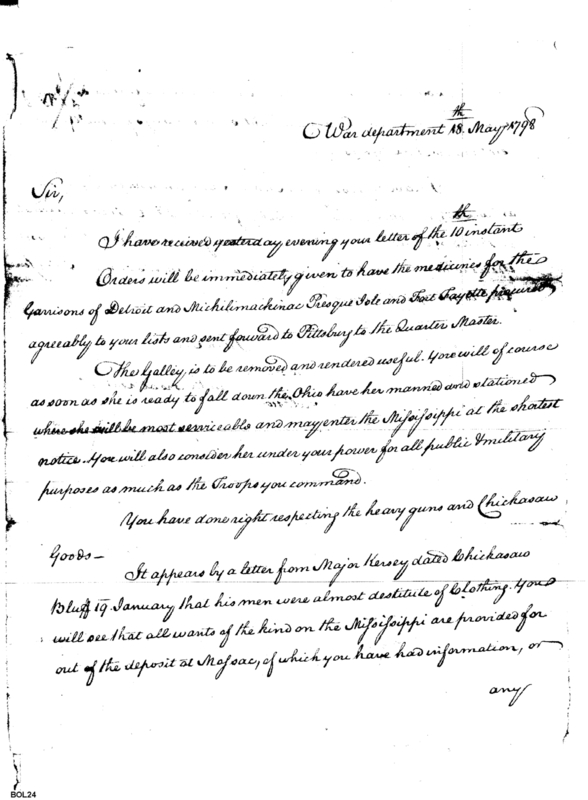 War department 18th. May 1798
Sir,
I have received yesterday evening your letter of the 10th instant
Orders will be immediately given to have the medicines for the
Garrisons of Detroit and Michilimackinac Presque Isle and Fort Fayette procured
agreeably to your lists and sent forward to Pittsburg to the Quarter Master.
The Galley, is to be removed and rendered useful. You will of course
as soon as she is ready to fall down the Ohio have her manned and stationed
where she will be most serviceable and may enter the Mississippi at the shortest
notice. You will also consider her under your power for all public & military
purposes as much as the Troops you command.
You have done right respecting the heavy guns and Chickasaw
Goods—
It appears by a letter from Major Kersey dated Chickasaw
Bluff 19 January that his men were almost destitute of Clothing. You
will see that all wants of the kind on the Mississippi are provided for
out of the deposit at Massac, of which you have had information, or
any
BOL24